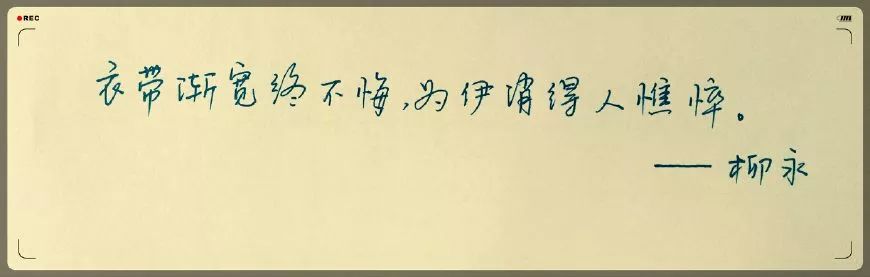 REC
衣带渐宽终不悔,为伊消得人憔悴。
——柳永